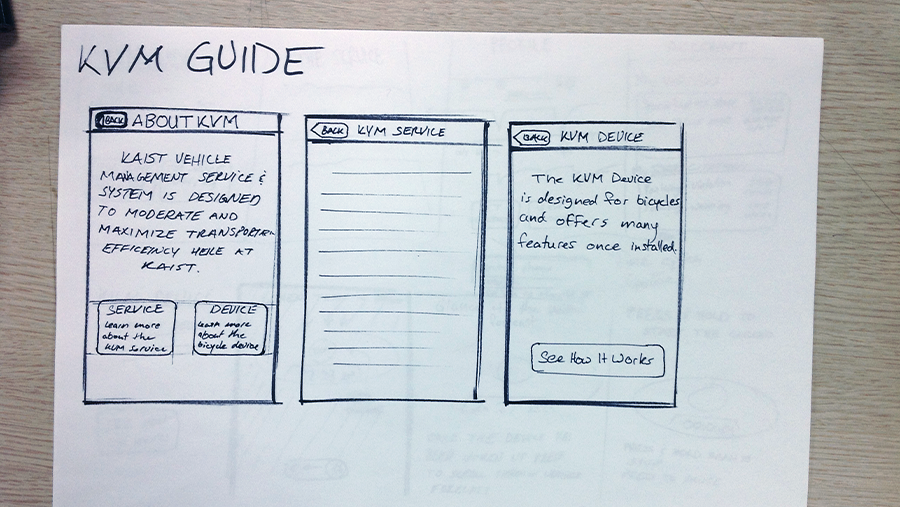 KVM GUIDE
BACK ABOUT KVM
KAIST VEHICLE
MANAGEMENT SERVICE &
SYSTEM IS DESIGNED
TO MODERATE AND
MAXIMIZE
EFFICENCY HERE AT
KAIST.
SERVICE
learn more
about the
KVM Service
DEVICE
learn more
about the
bicycle device
BACK KVM SERVICE
BACK KVM DEVICE
The KVM Device
is designed for bicycles
and offers many
features once installed.
See How It Works